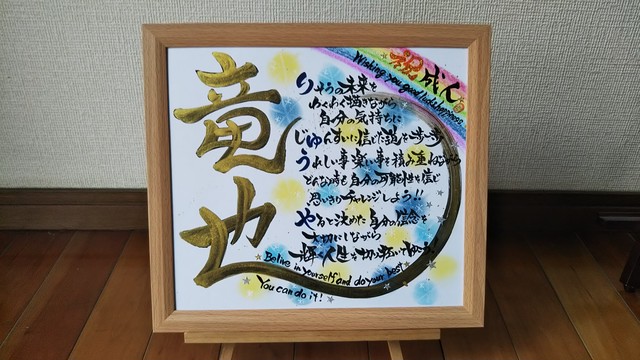 竜也
祝成人
Wishing you good luck & happiness
りそうの未来を
わくわく描きながら
自分の気持ちに
じゅんすいに信じた道を一歩一歩
うれしい事楽い事を積み重ねながら
どんな時も自分の可能性を信じ
思いきりチャレンジしよう!!
やると決めた自分の信念を
大切にしながら
一輝の人生を切り拓いて
Belive in yourself and do your best
You can do it!